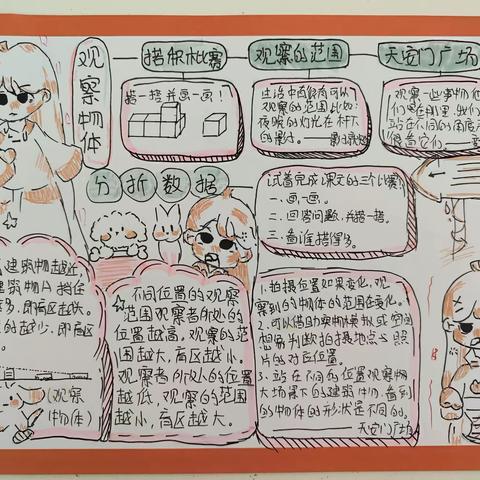 观察物体
搭积木比赛
搭一搭并画一画！
观察的范围
生活中有很多可以
观察的范围比如：
夜晚的灯光在杆下
的
天安门广场
观察一些事物
站在不同的角度
分析数据
试着完成课文的三个比赛！
一.画一画。
二.回答问题，并搭一搭。
三.看谁搭得多。
建筑物越近，
盲区越大。
的越少，即盲区
（观察
物体）
☆不同位置的观察
范围观察者所处的
位置越高，观察的范
围越大，盲区越小。
观察者所处的位置
越低，观察的范围
越小，盲区越大。
1.拍摄位置如果变化，观
察到的物体的范围在变化。
2.可以借助实物模拟或空间
想象判断拍摄地点与照
片的对应位置。
3.站在不同的位置观察物
大场景下的建筑物，看到
的物体的形状是不同的。
——天安门广场